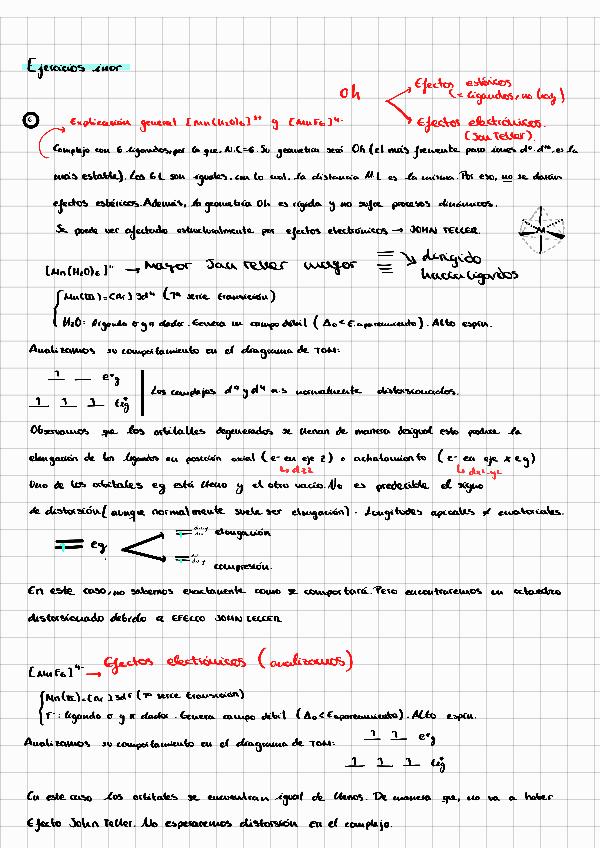 Ejercicios inor
Oh
Efectos estéricos
(≠ ligandos, no hay)
Efectos electrónicos.
(Jan Teller).
Explicación general [Mn(H2O)6]3+ y [MnF6]4-
Complejo con 6 ligandos, por lo que, N.C=6. Su geometría será Oh (el más frecuente para iones d0-d10, es la
más estable). Los 6 L son iguales, con lo cual, la distancia M-L es la misma. Por eso, no se darán
efectos estéricos. Además, la geometría Oh es rígida y no sufre procesos dinámicos.
Se puede ver afectado estructuralmente por efectos electrónicos → JOHN TELLER.
M
[Mn(H2O)6] → Mayor Jan Teller mayor
dirigido
hacia ligandos
Mn(III) = [Ar] 3d4 (1ª serie transición)
H2O: ligando σ y π dador. Genera un campo débil (Δo < E.apareamiento). Alto espín.
Analizamos su comportamiento en el diagrama de TOM:
1 _ e*g
1 1 1 t2g*
Los complejos d9 y d4 a.s normalmente distorsionados.
Observamos que los orbitales degenerados se llenan de manera desigual esto produce la
elongación de los ligandos en posición axial (e- en eje z) o achatamiento (e- en eje x e y)
↳ dz2
↳ dx2-y2
Uno de los orbitales eg está lleno y el otro vacío. No es predecible el signo
de distorsión (aunque normalmente suele ser elongación). Longitudes apicales ≠ ecuatoriales.
eg
elongación
compresión.
En este caso, no sabemos exactamente como se comportará. Pero encontraremos un octaedro
distorsionado debido a EFECTO JOHN TELLER
[MnF6]4- → Efectos electrónicos (analizamos)
Mn(II) = [Ar] 3d5 (1ª serie transición)
F-: ligando σ y π dador. Genera campo débil (Δo < Eapareamiento). Alto espín.
Analizamos su comportamiento en el diagrama de TOM:
1 1 e*g
1 1 1 t2g*
En este caso los orbitales se encuentran igual de llenos. De manera que, no va a haber
Efecto John Teller. No esperaremos distorsión en el complejo.